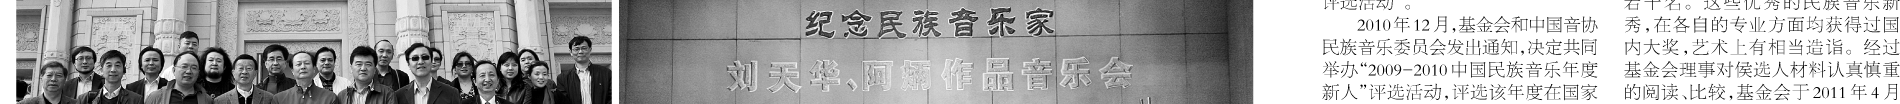 纪念民族音乐家
刘天华、阿炳作品音乐会
评选活动”。
2010年12月,基金会和中国音协
民族音乐委员会发出通知,决定共同
举办“2009-2010中国民族音乐年度
新人”评选活动,评选该年度在国家
若干名。这些优秀的民族音乐新
秀,在各自的专业方面均获得过国
内大奖,艺术上有相当造诣。经过
基金会理事对候选人材料认真慎重
的阅读、比较,基金会于2011年4月